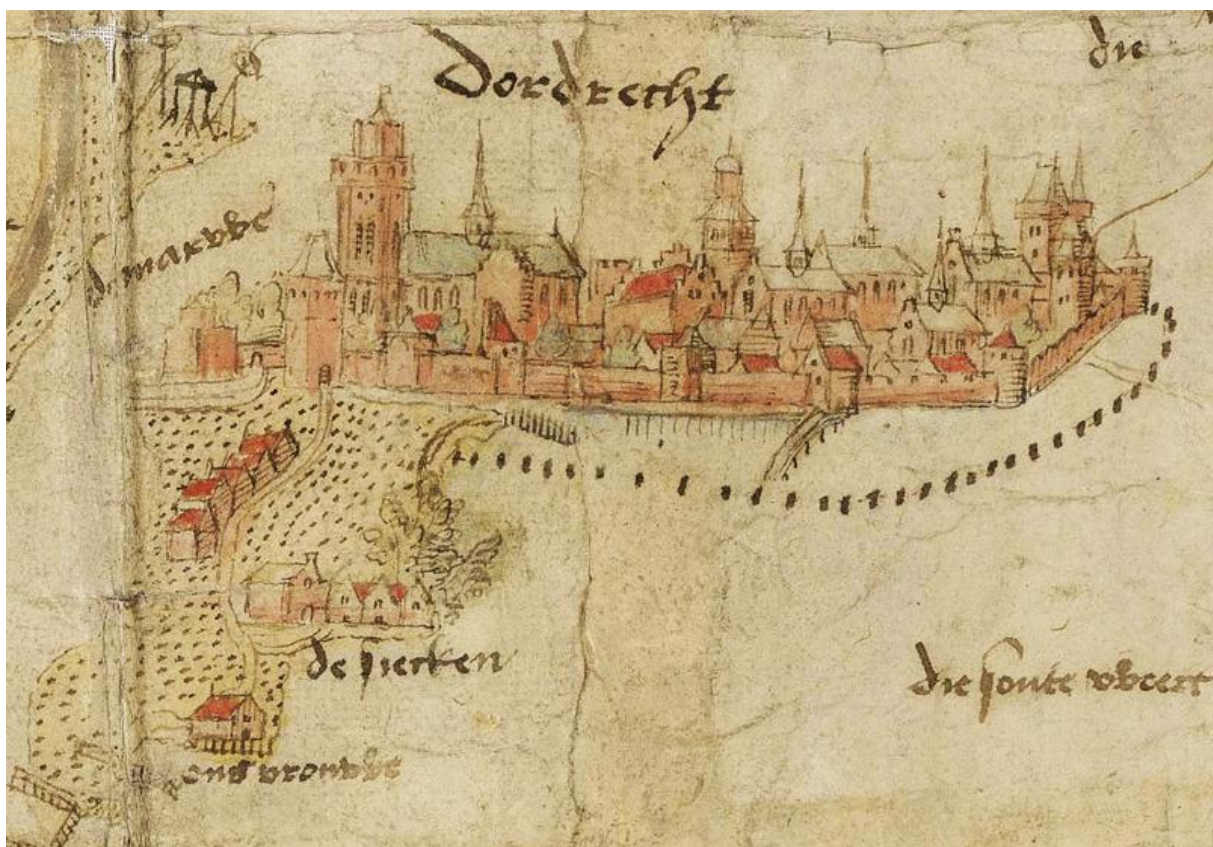 Dordrecht
die
marvve
de siecken
die soute vveert
ons vrouvve